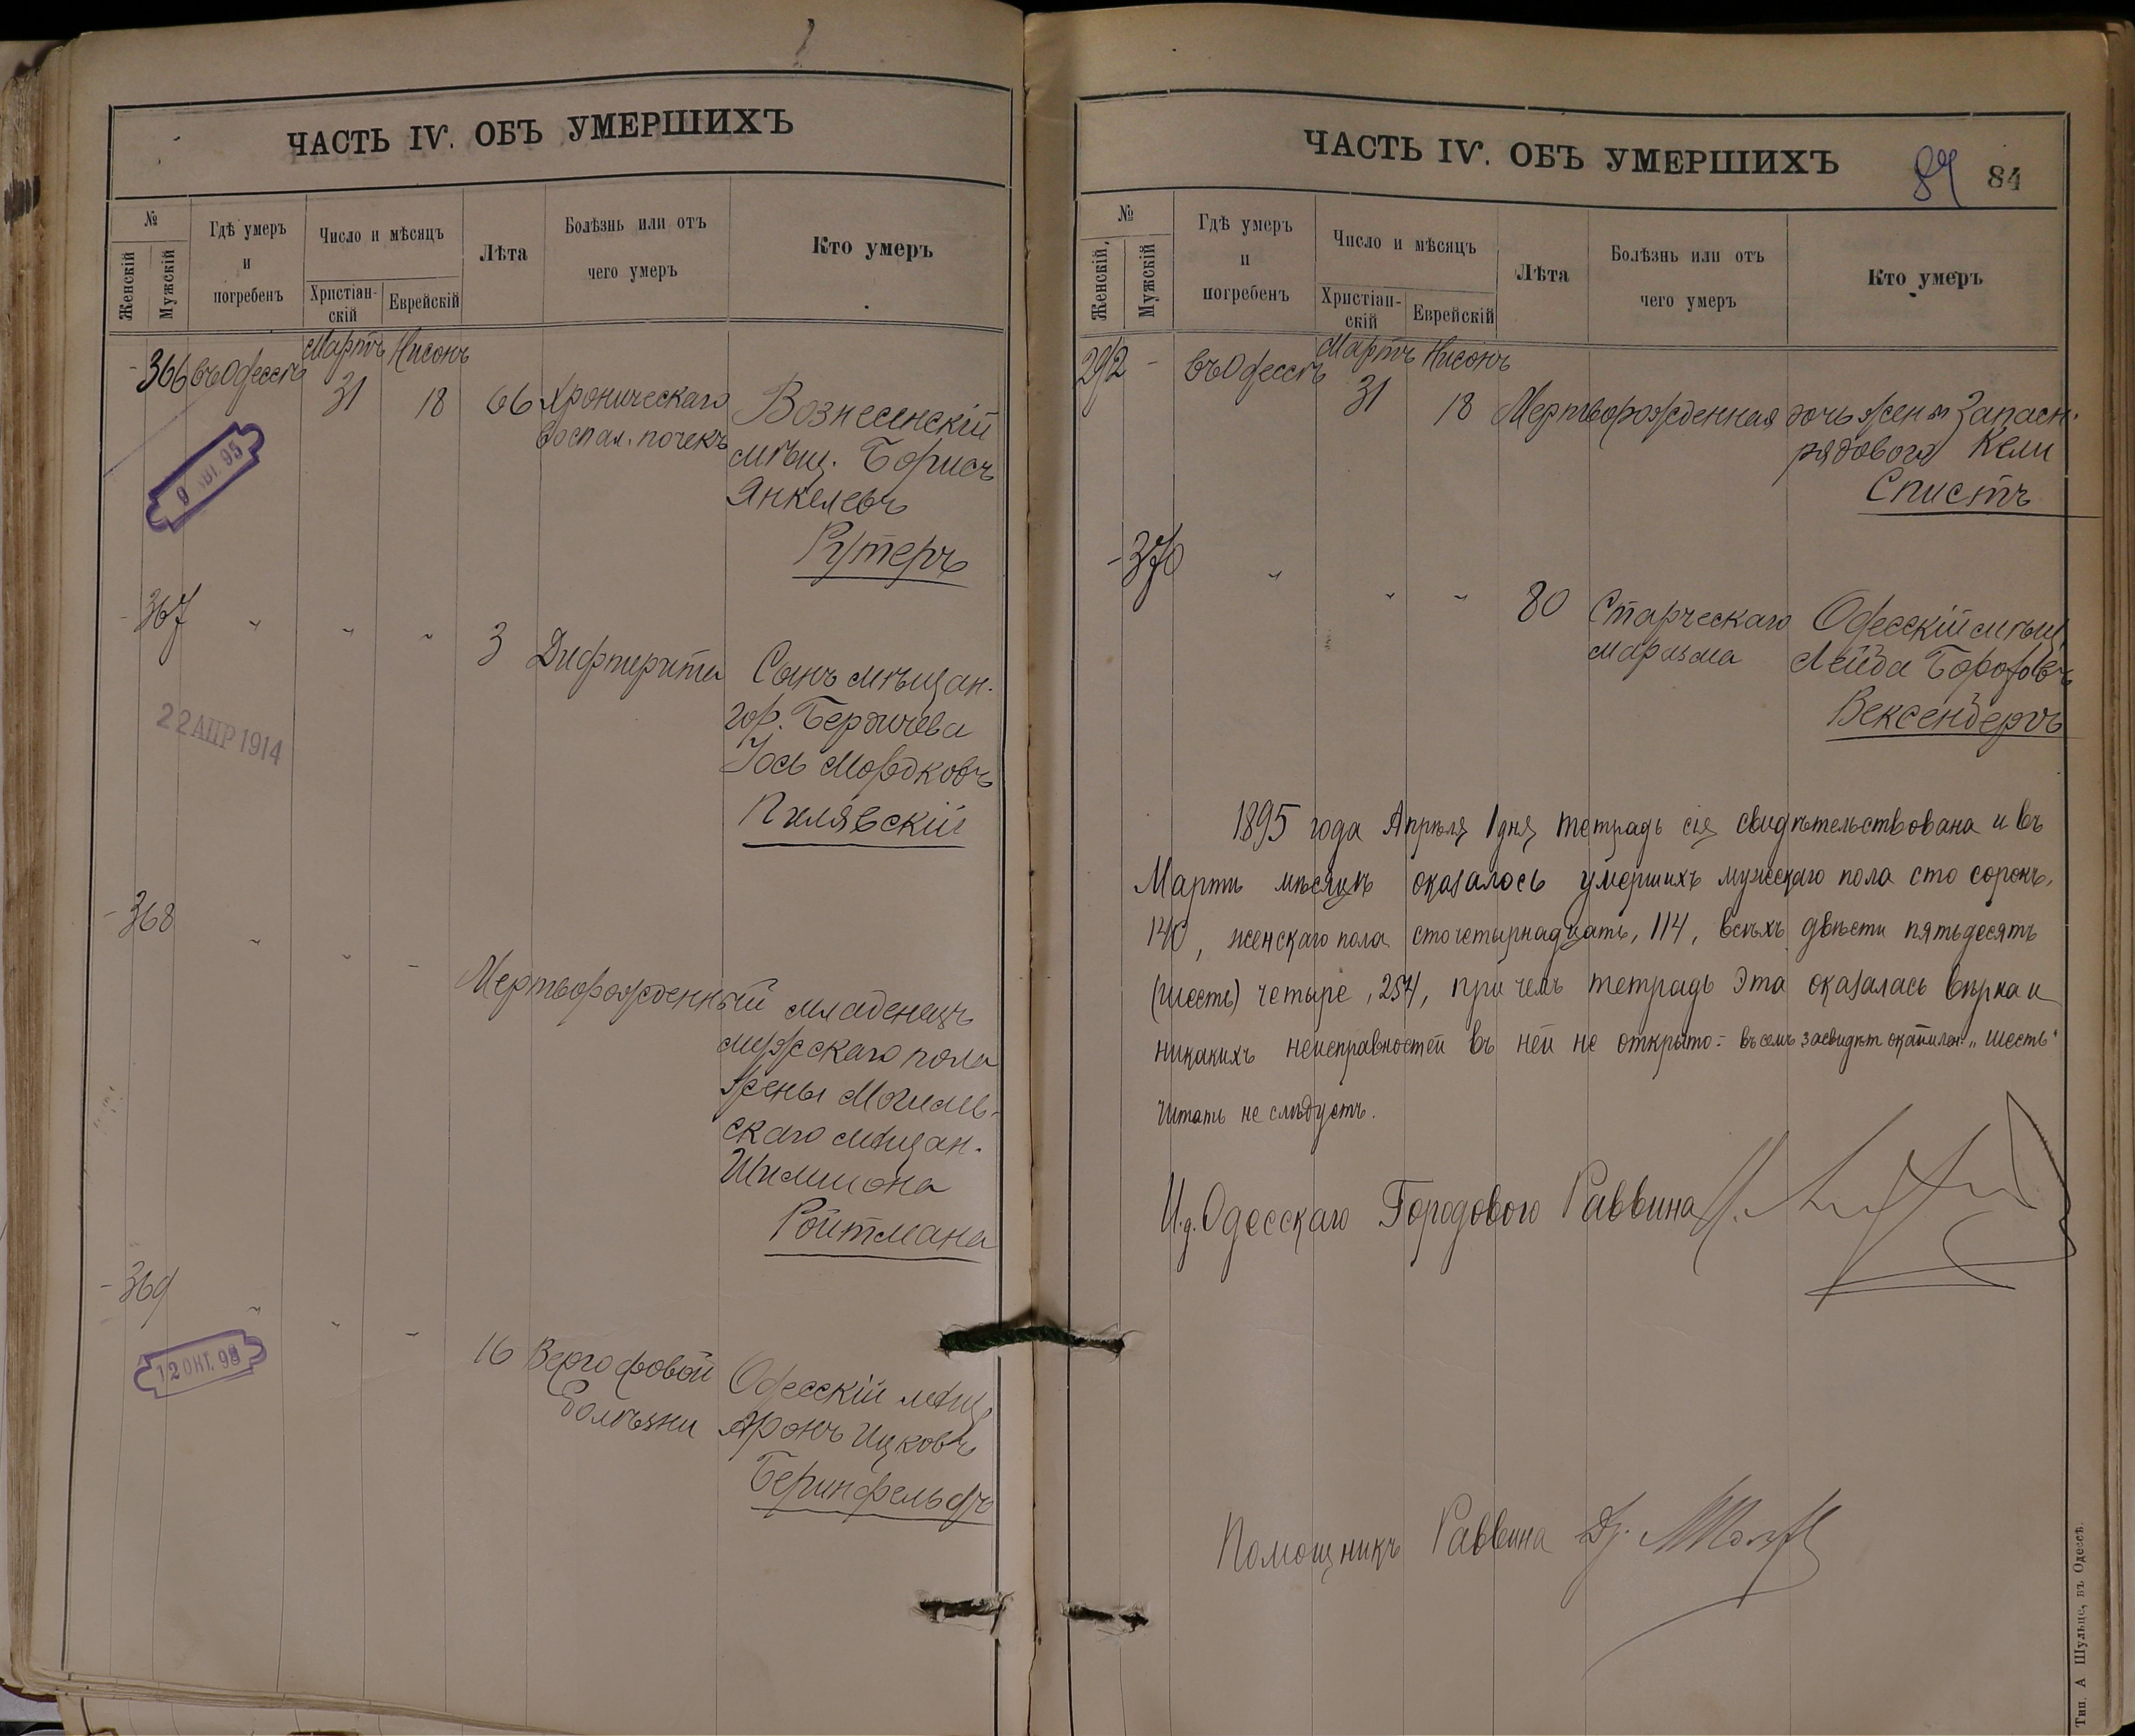 ЧАСТЬ IV. ОБЪ УМЕРШИХЪ
№
Женскій
Мужскій
Гдѣ умеръ
и
погребенъ
Число и мѣсяцъ
Христіан-
скій
Еврейскій
Лѣта
Болѣзнь или отъ
чего умеръ
Кто умеръ
Мартъ Нисонъ
- 366 въ Одессѣ 31 18 66 Хроническаго Вознесенскій
воспал. почекъ мѣщ. Борисъ
Янкелевъ
Рутеръ
9 95
- 367 " " " 3 Дифтерита Сынъ мѣщан.
гор. Бердичева
Іось Мордковъ
Пилявскій
22 АПР 1914
- 368 " " "
Мертворожденный младенецъ
мужскаго пола
жены Могилев-
скаго мѣщан.
Шимшона
Ройтмана
- 369 " " "
16 Верлофовой Одесскій мѣщ.
болѣзни Аронъ Ицковъ
Беринфельдъ
12 ОКТ. 98
ЧАСТЬ IV. ОБЪ УМЕРШИХЪ
84 84
№
Женскій,
Мужскій
Гдѣ умеръ
и
погребенъ
Число и мѣсяцъ
Христіан-
скій
Еврейскій
Лѣта
Болѣзнь или отъ
чего умеръ
Кто умеръ
Мартъ Нисонъ
292 - въ Одессѣ 31 18 Мертворожденная дочь жены Запасн.
рядового Кели
Спистъ
- 370 " " " 80 Старческаго Одесскій мѣщ.
маразма Лейба Боруховъ
Вексендеръ
1895 года Апрѣля 1 дня тетрадь сія свидѣтельствована и въ
Мартѣ мѣсяцѣ оказалось умершихъ мужескаго пола сто сорокъ,
140, женскаго пола сто четырнадцать, 114, всѣхъ двѣсти пятьдесятъ
(шесть) четыре, 254, при чемъ тетрадь эта оказалась вѣрна и
никакихъ неисправностей въ ней не открыто:- въ семъ засвидѣт „шесть"
читать не слѣдуетъ.
И.д. Одесскаго Городового Раввина
Помощникъ Раввина Др.
Тип. А Шульце, въ Одессѣ.